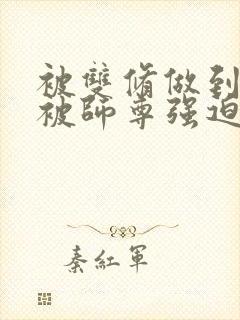 被雙脩做到
被師尊强迫
秦紅軍